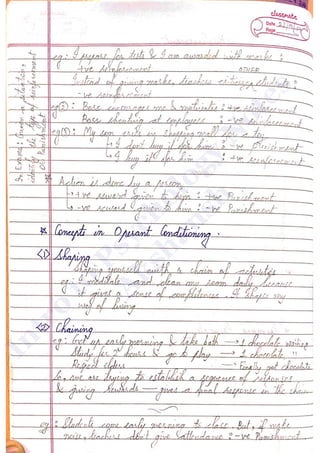 classmate
Date
Page
eg: I prepare for tests & I am awarded with marks :
+ve reinforcement OTHER
Instead of giving marks, teachers criticizes students :
-ve reinforcement
eg②: Boss encourages me & motivates : +ve reinforcement
Boss shouting at employees : -ve reinforcement
eg③: My son cries in shopping mall for a toy
I don't buy it for him : -ve Punishment
I buy it for him : +ve reinforcement
In Exam: focus on
identify the type of reinforcement
or Punishment
* Action is done by a person
+ve reward given to him : +ve Punishment
-ve reward given to him : -ve Punishment
* Concepts in Operant Conditioning.
<1> Shaping
Shaping yourself with a chain of activities
eg: I meditate and clean my room daily because
it gives a sense of completeness. It shapes my
way of living
<2> Chaining
eg: Get up early morning & take bath → 1 chocolate
Study for 2 hours & go to play → 1 chocolate "
Respect elders → Finally get chocolate
So, we are trying to establish a sequence of responses
& giving rewards — gives a final response in the chain
eg: Students come early morning to class. But, if make
noise, teachers don't give attendance : -ve Punishment